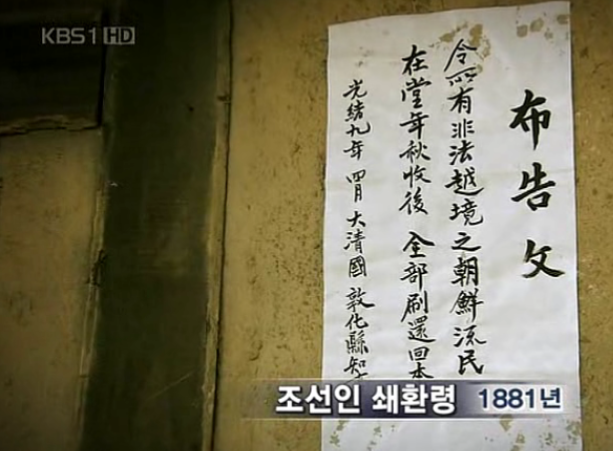 KBS1 HD
布告文
令所有非法越境之朝鮮流民
在堂年秋收後 全部刷還回本
光緒九年 四月 大清國 敦化縣知
조선인 쇄환령 1881년